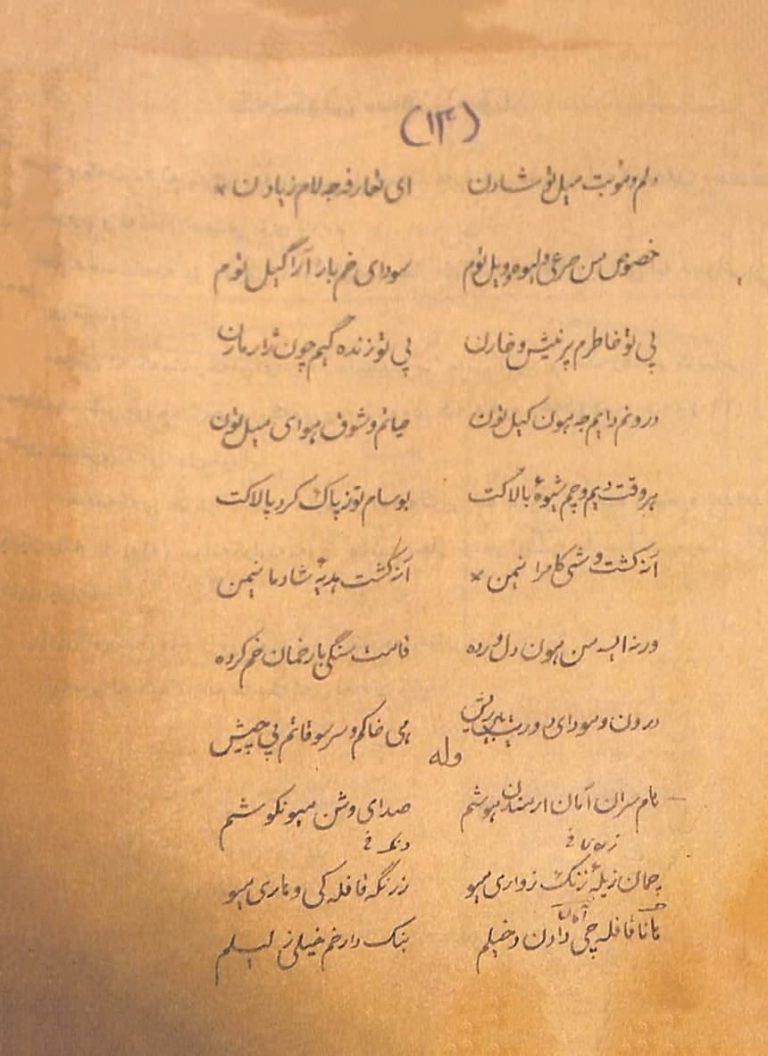 (۱۳)
دلم و مؤبت میل تو شادن ای تعارفه جه لام زیادن ×
خصوص من صرعی و لیوه و ویل توم سودای خم بار اراگیل توم
بی تو خاطرم پر نیش و خارن بی تو زنده گیم چون ژار مارن
درونم دایم جه هون کیل تون حیاتم و شوق هوای میل تون
هر وقت دیم و چم شیوهٔ بالاکت بوسام توز پاک کرد بالاکت
آنه کشت و شی کامرا نیمن × آنه کشت هدیهٔ شادمانیمن
ورنه ایسه من هون دل ورده قامت سنگی بار خمان خم کرده
درون و سودای دوریت می خاکم و سر سو قاتم نی چیش
وله
نام سران آمان ار مندن هوشم صدای وشن میو نکوشم
زیله تا ؟ دنگ ؟
چمان زیلهٔ زنگ زواری میو زرنگه قافله کی و ناری میو
مانا قافله چی دادن دخیلم آمان بنک دار خم خیلی ز لیلم